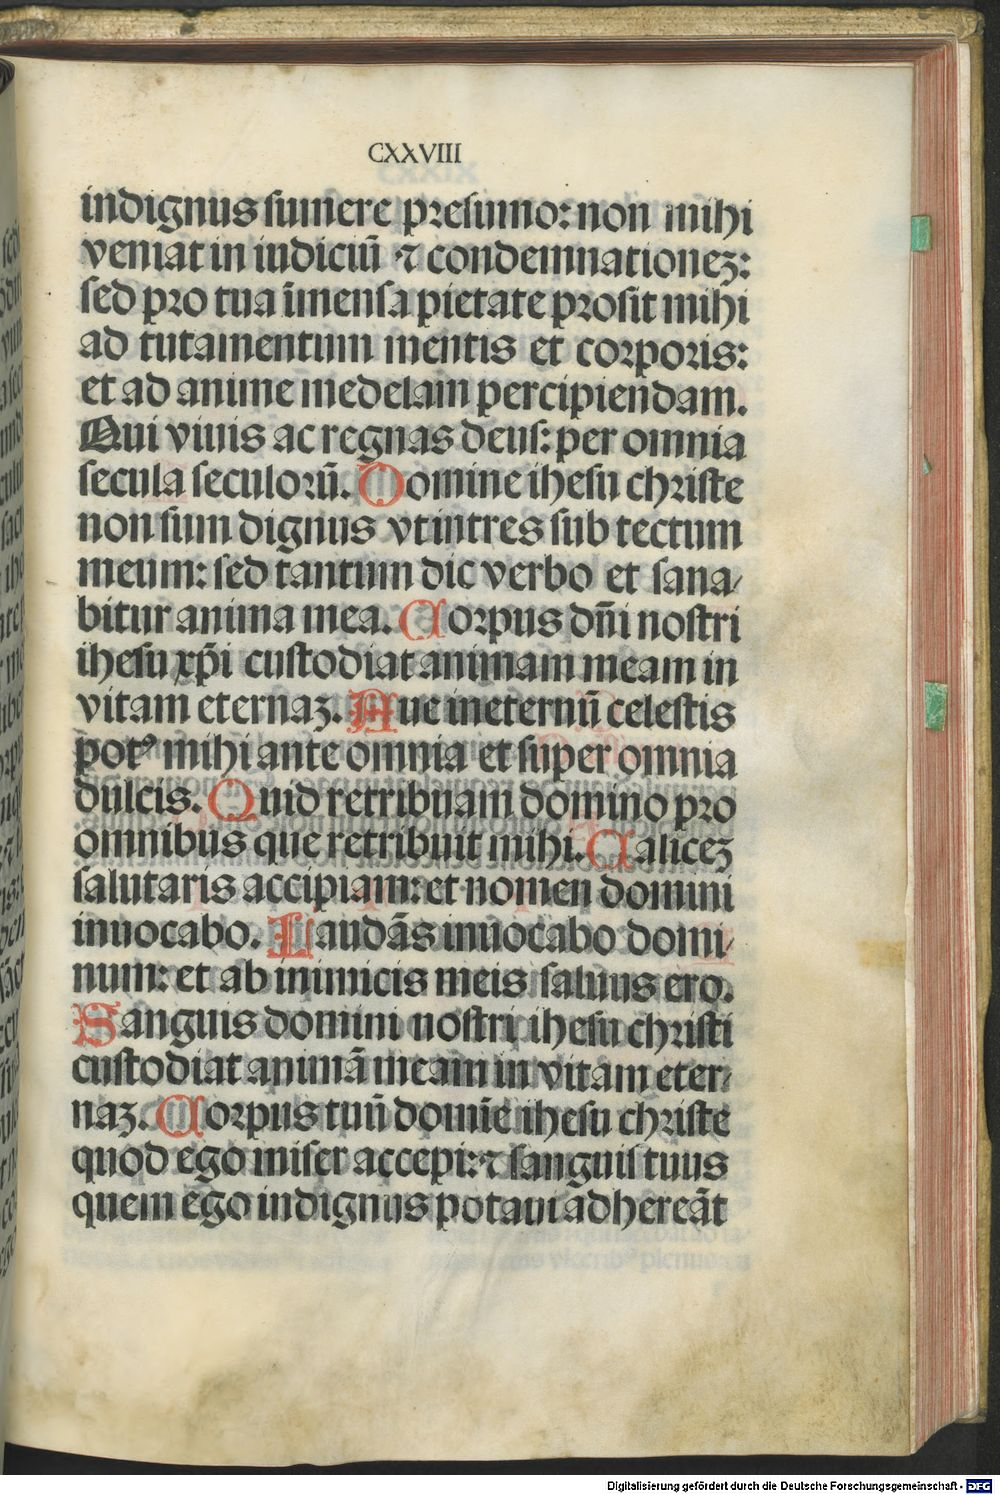 CXXVIII
indignus sumere presumo: non mihi
veniat in iudiciū ⁊ condemnationeꝫ:
sed pro tua īmensa pietate prosit mihi
ad tutamentum mentis et corporis:
et ad anime medelam percipiendam.
Qui viuis ac regnas deus: per omnia
secula seculorū. Domine ihesu christe
non sum dignus vt intres sub tectum
meum: sed tantum dic verbo et sana/
bitur anima mea. Corpus dn̄i nostri
ihesu xp̄i custodiat animam meam in
vitam eternaꝫ. Aue ineternū celestis
potꝰ mihi ante omnia et super omnia
dulcis. Quid retribuam domino pro
omnibus que retribuit mihi. Caliceꝫ
salutaris accipiam: et nomen domini
inuocabo. Laudās inuocabo domi/
num: et ab inimicis meis saluus ero.
Sanguis domini nostri ihesu christi
custodiat animā meam in vitam eter/
naꝫ. Corpus tuū domīe ihesu christe
quod ego miser accepi: ⁊ sanguis tuus
quem ego indignus potaui adhereāt
Digitalisierung gefördert durch die Deutsche Forschungsgemeinschaft - DFG